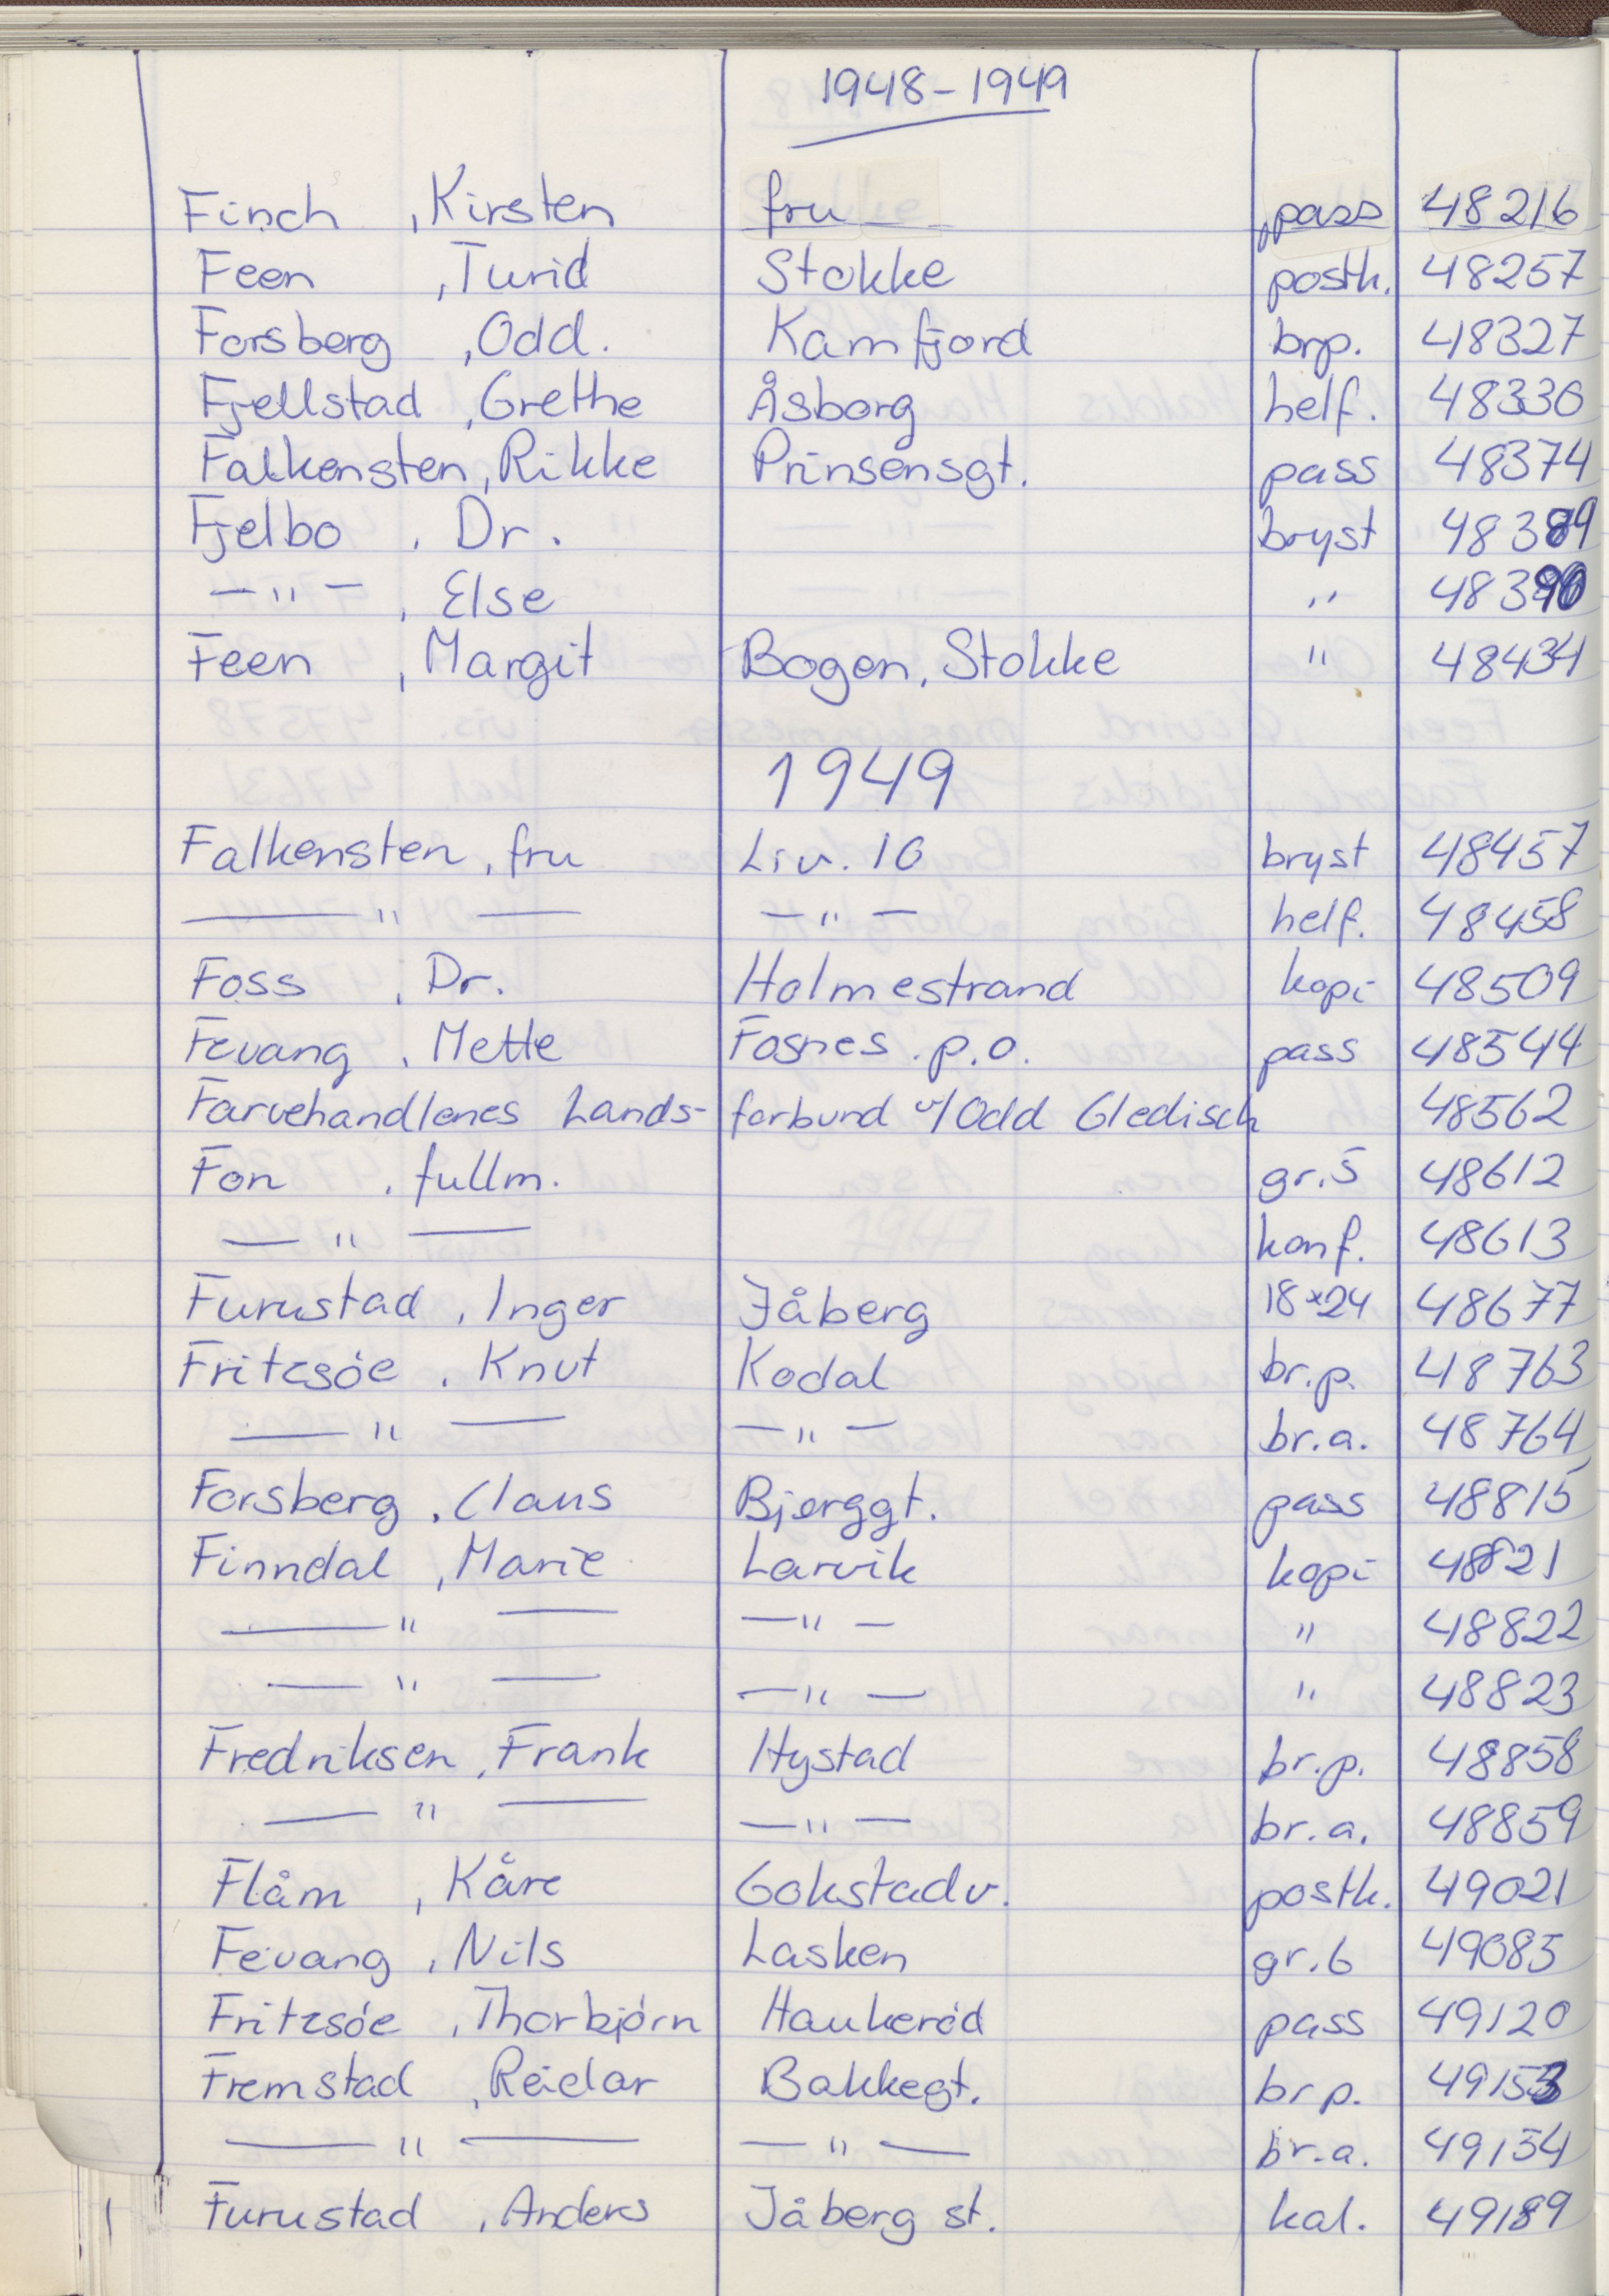 1948-1949
Finch , Kirsten fru pass 48216
Feen , Turid Stokke postk. 48257
Forsberg , Odd. Kamfjord brp. 48327
Fjellstad , Grethe Åsborg helf. 48330
Falkensten , Rikke Prinsensgt. pass 48374
Fjelbo , Dr. bryst 48389
—"— , Else " 48390
Feen , Margit Bogen, Stokke " 48434
1949
Falkensten , fru Liv. 10 bryst 48457
—"— —"— helf. 48458
Foss , Dr. Holmestrand kopi 48509
Fevang , Mette Fosnes p.o. pass 48544
Farvehandlenes Lands- forbund v/Odd Gledisch 48562
Fon , fullm. gr.5 48612
—"— konf. 48613
Furustad , Inger Jåberg 18x24 48677
Fritzsöe , Knut Kodal br.p. 48763
—"— —"— br.a. 48764
Forsberg , Claus Bjerggt. pass 48815
Finndal , Marie Larvik kopi 48821
—"— —"— " 48822
—"— —"— " 48823
Fredriksen , Frank Hystad br.p. 48858
—"— —"— br.a. 48859
Flåm , Kåre Gokstadv. postk. 49021
Fevang , Nils Lasken gr.6 49085
Fritzsöe , Thorbjörn Haukeröd pass 49120
Fremstad , Reidar Bakkegt. brp. 49153
—"— —"— br.a. 49154
Furustad , Anders Jåberg st. kal. 49189